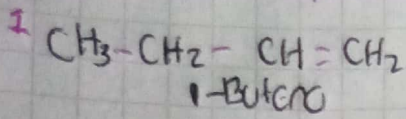 1 CH3-CH2-CH=CH2
1-Buteno